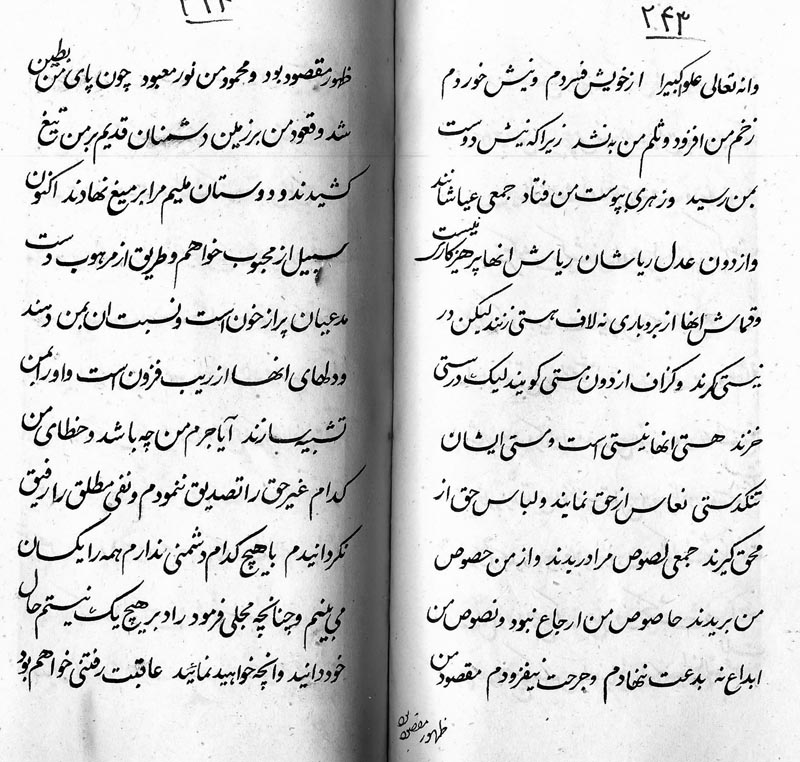 ۲۴۳
وانه تعالی علوا کبیرا از خویش فسردم و نیش خوردم
زخم من افزود و ثلم من به نشد زیراکه نیش دوست
بمن رسید و زهری بپوست من فتاد جمعی عیاشانند
و از دون عدل ریاشان ریاش انها پرهیزکاری نیست
و قماش انها از بردباری نه لاف هستی زنند لیکن در
نیستی نگرند و گزاف از دون مستی کویند لیک در ستی
خزند هستی انها نیستی است و مستی ایشان
تنکدستی نعاس از حق نمایند و لباس حق از
محق گیرند جمعی لصوص مرا دریدند و از من خصوص
من بریدند حاصوص من ارجاع نبود و نصوص من
ابداع نه بدعت ننهادم و جرحت نیفزودم مقصود من
ظهور مقصود
ظهور مقصود بود و محمود من نور معبود چون پای من بطین
شد و قعود من بر زمین دشمنان قدیم بر من تیغ
کشیدند و دوستان ملیم مرا بر میغ نهادند اکنون
سبیل از محبوب خواهم و طریق از مرهوب دست
مدعیان پر از خون است و نسبت ان بمن دهند
و دلهای انها از ریب فزون است و اورا بمن
تشبیه سازند آیا جرم من چه باشد و خطای من
کدام غیر حق را تصدیق ننمودم و نفی مطلق را رفیق
نکردانیدم با هیچ کدام دشمنی ندارم همه را یکسان
می بینم و چنانچه مجلی فرمود راد بر هیچ یک نیستم حال
خود دانید و انچه خواهید نمائید عاقبت رفتنی خواهم بود